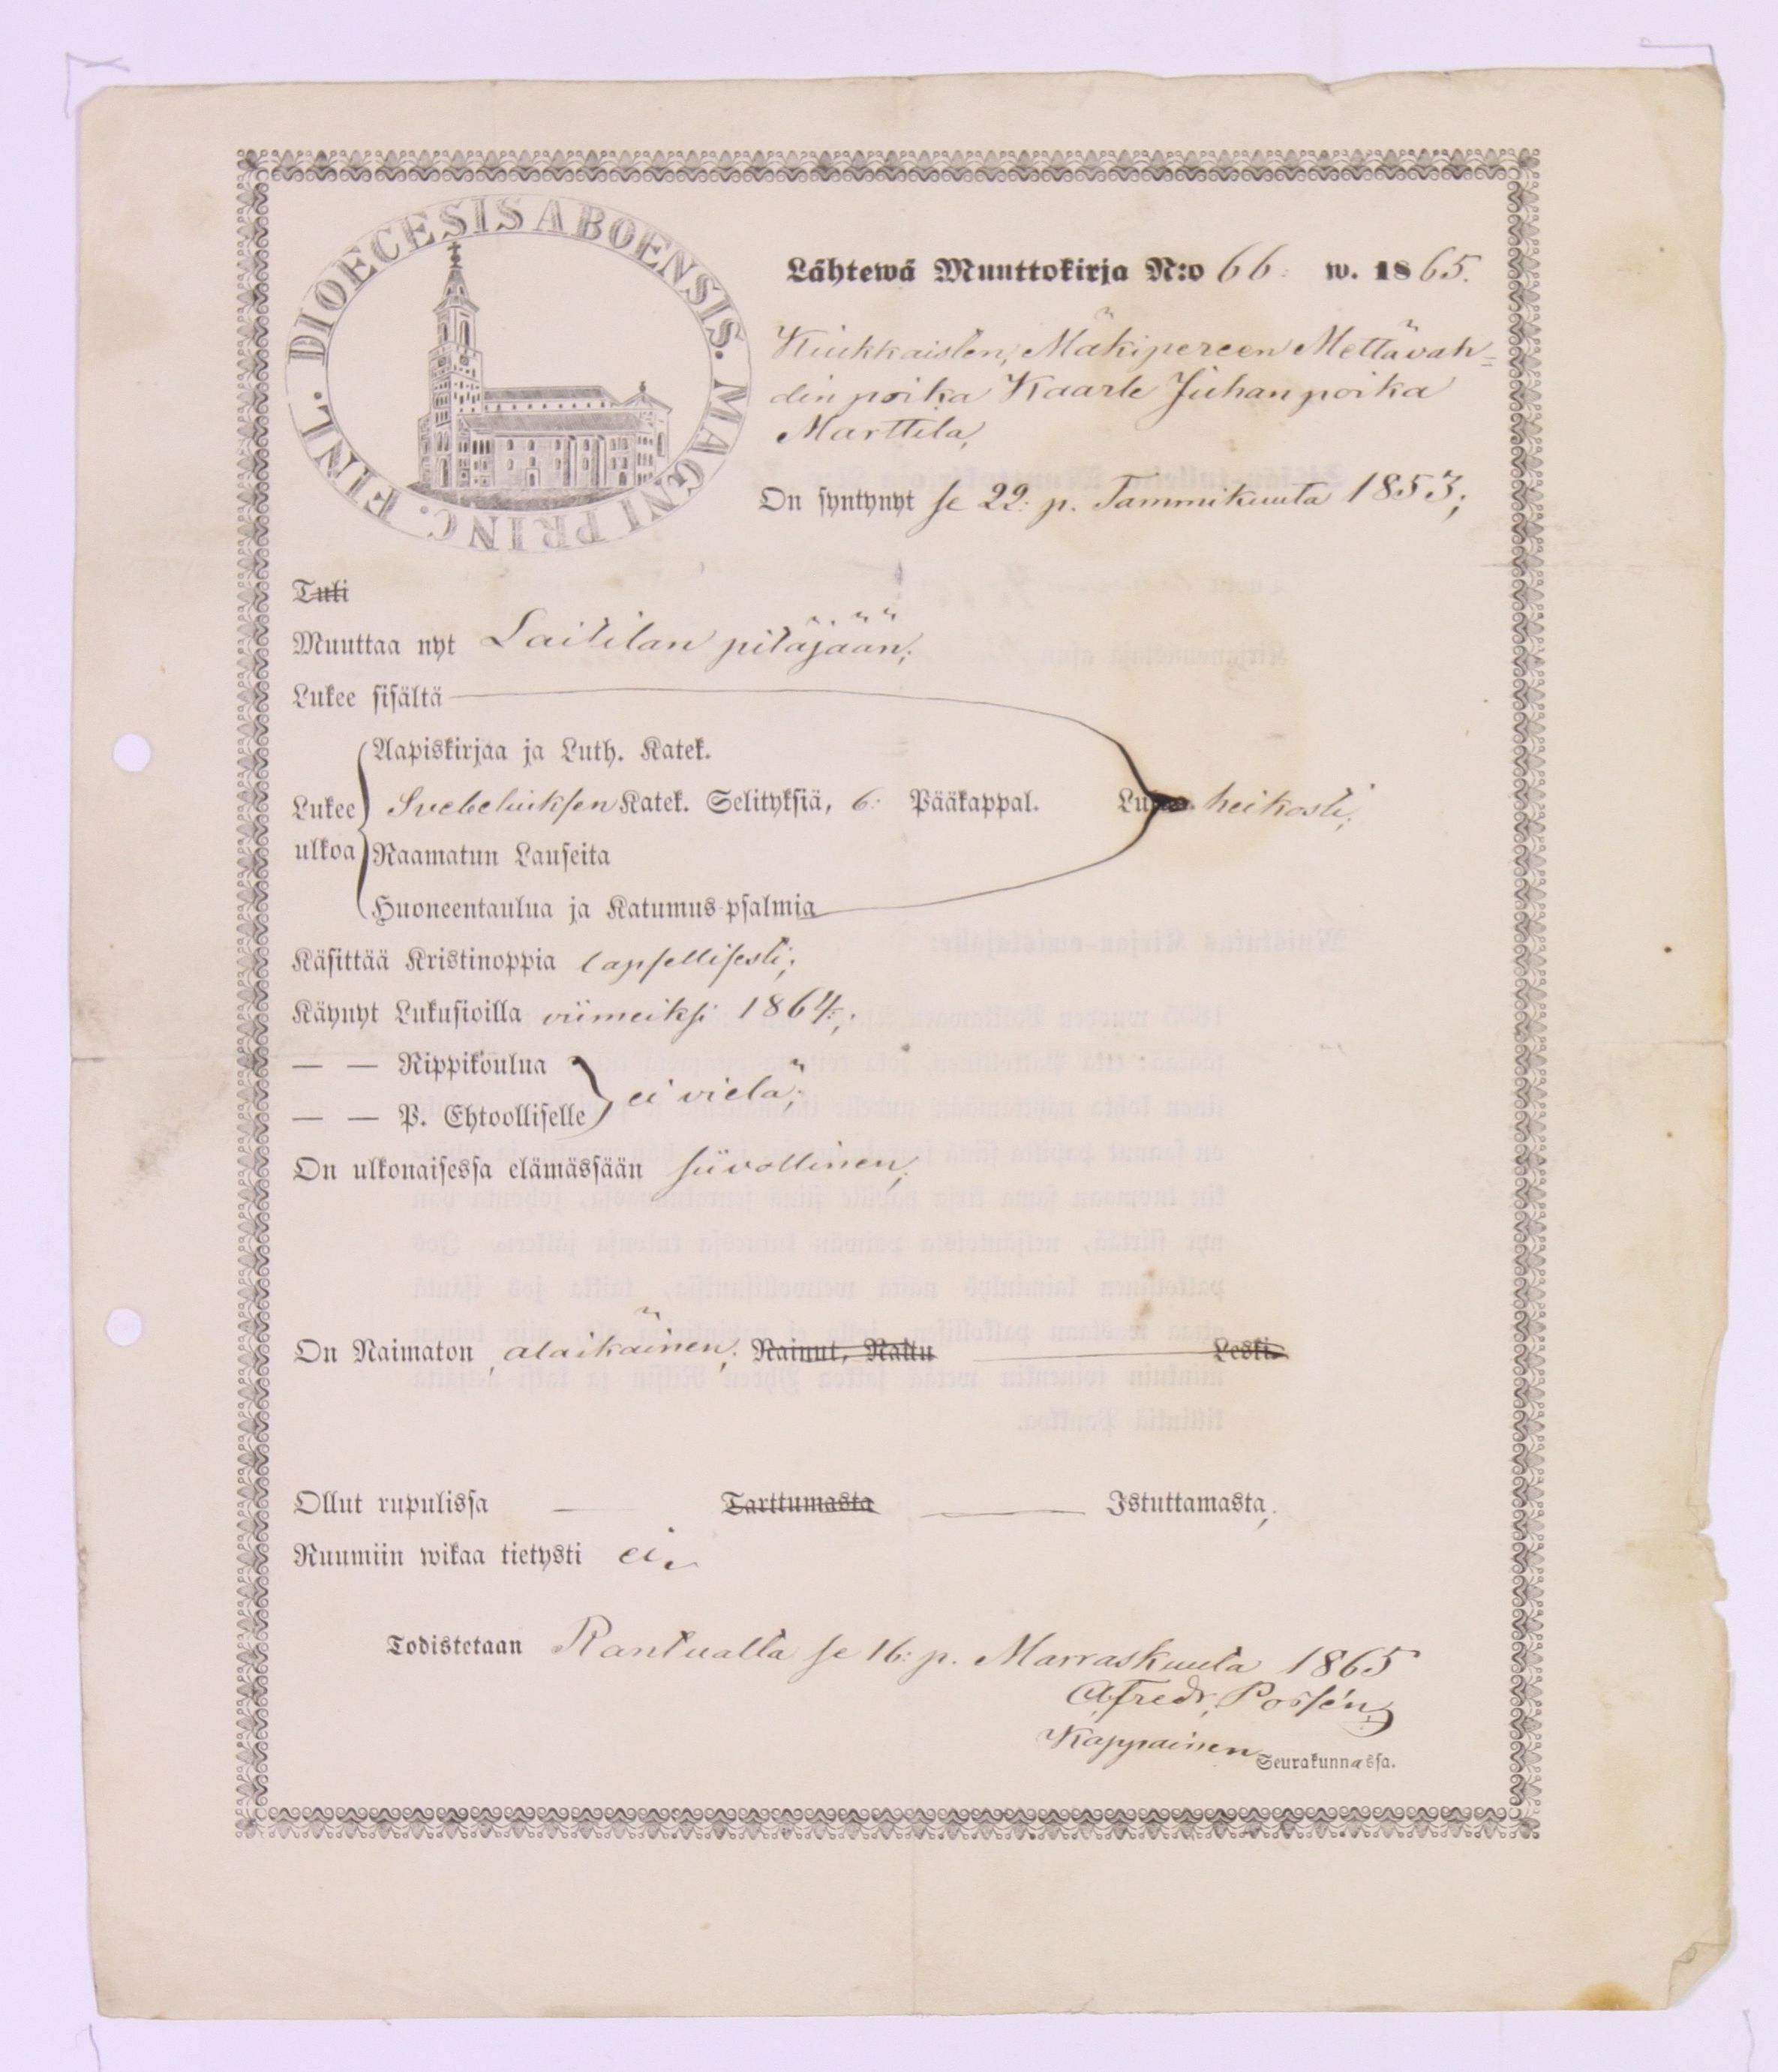 DIOECESIS ABOENSIS. MAGNI PRINC. FINL.
Lähtewä Muuttokirja N:o 66: w. 1865.
Kiukkaisten, Mäkipereen Mettävah=
din poika Kaarle Juhanpoika
Marttila,
On syntynyt se 22: p. Tammikuuta 1853;
Tuli
Muuttaa nyt Laitilan pitäjään;
Lukee sisältä
Aapiskirjaa ja Luth. Katek.
Lukee ulkoa Svebeliuksen Katek. Selityksiä, 6: Pääkappal. heikosti;
Raamatun Lauseita
Huoneentaulua ja Katumus-psalmia
Käsittää Kristinoppia lapsellisesti;
Käynyt Lukusioilla viimeiksi 1864:;
— — Rippikoulua
ei vielä;
— — P. Ehtoolliselle
On ulkonaisessa elämässään siivollinen;
On Naimaton, alaikäinen; Nainut, Naitu Leski.
Ollut rupulissa — Tarttumasta — Istuttamasta,
Ruumiin wikaa tietysti ei.
Todistetaan Kantualla se 16: p. Marraskuuta 1865
Afredr. Possén,
Kappainen Seurakunnassa.